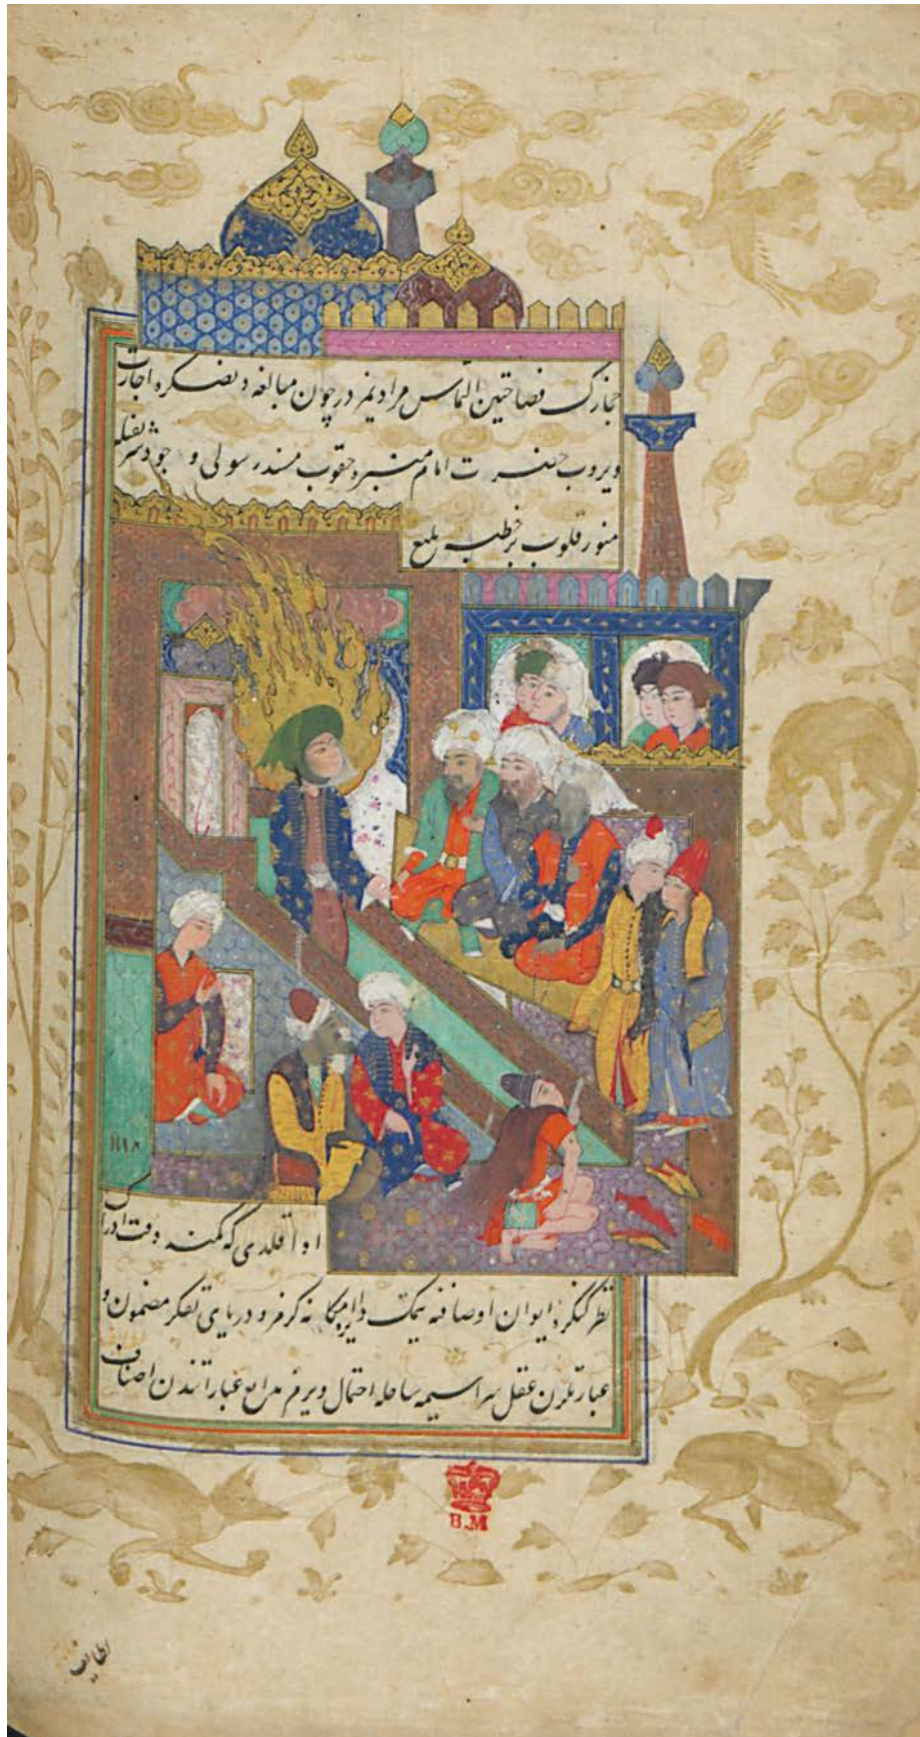 حجازک فصاحتین التماس مرادیمز درچون مبالغه و تضکره اجازت
ویروب حضرت امام منبره چقوب مسند رسولی و جود شریفله
منور قلوب بر خطبه بلیغ
ادا قلدی که کمند دقت ادراک
نظر کنکره ایوان اوصافنه یتمک دایره امکانه کرمز و دریای تفکر مضمون و
عبارتلرندن عقل سراسیمه ساحله احتمال ویرمز بدایع عباراتندن اصناف
۱۱۸
B.M
لطایف